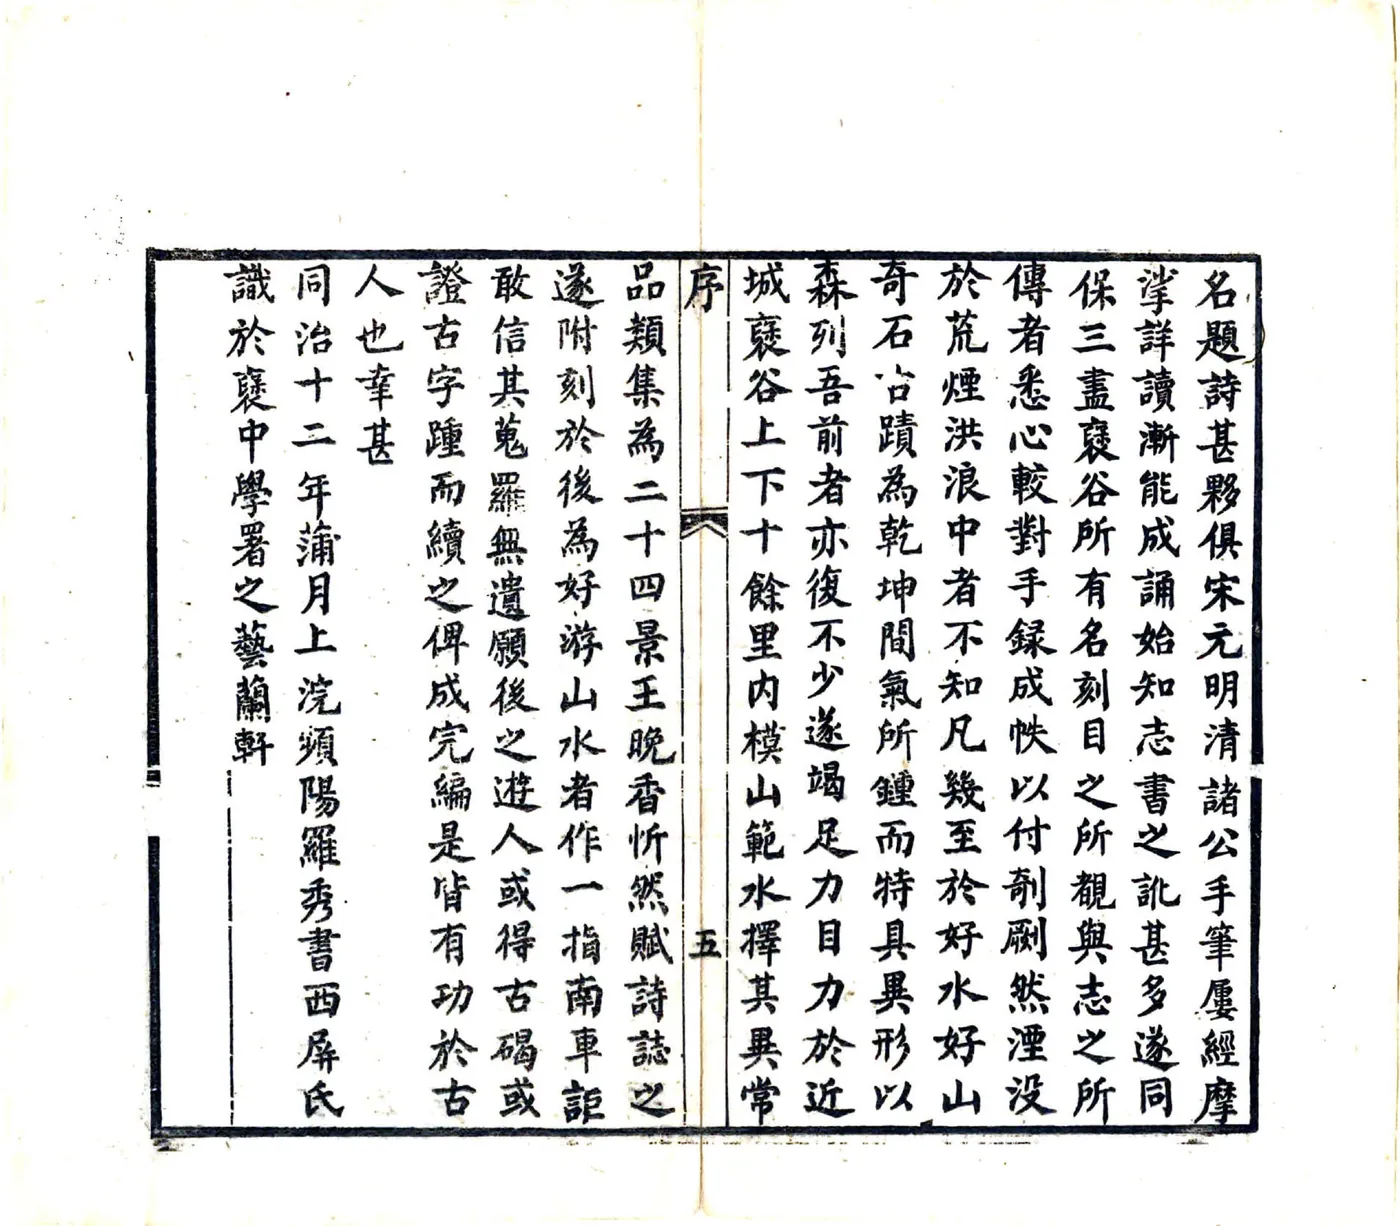 名題詩甚夥俱宋元明清諸公手筆屢經摩
挲詳讀漸能成誦始知志書之訛甚多遂同
保三盡褒谷所有名刻目之所覩與志之所
傳者悉心較對手録成帙以付剞劂然湮没
於荒煙洪浪中者不知凡幾至於好水好山
奇石古蹟為乾坤間氣所鍾而特具異形以
森列吾前者亦復不少遂竭足力目力於近
城褒谷上下十餘里内模山範水擇其異常
序
五
品類集為二十四景王晚香忻然賦詩誌之
遂附刻於後為好游山水者作一指南車詎
敢信其蒐羅無遺願後之遊人或得古碣或
證古字踵而續之俾成完編是皆有功於古
人也幸甚
同治十二年蒲月上浣頻陽羅秀書西屏氏
識於褒中學署之藝蘭軒